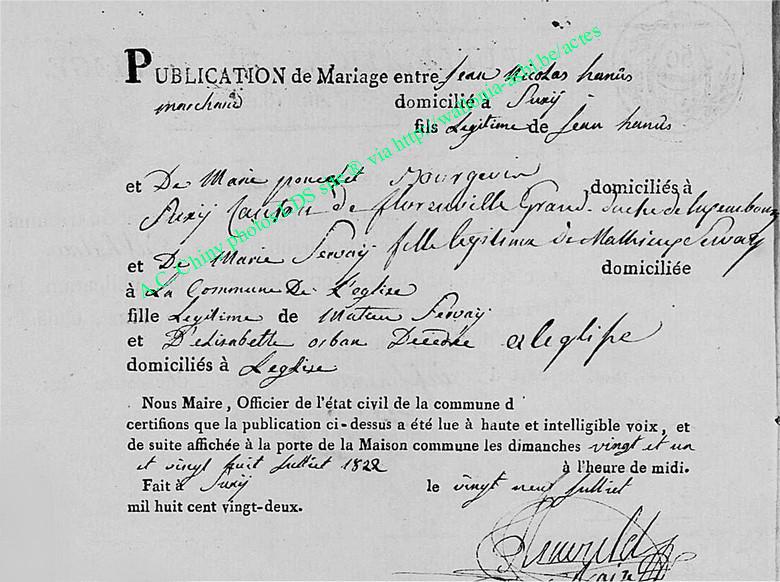 PUBLICATION de Mariage entre Jean Nicolas hanus
marchand domicilié à Suxÿ
fils Legitime de Jean hanus
et De Marie domiciliés à
Suxÿ Canton de florenville Grand-duché de luxembourg
et De Marie Servaÿ fille legitime de Mathieu Servaÿ domiciliée
à La Commune De L'eglise
fille Legitime de Servaÿ
et D'elisabette orban à leglise
domiciliés à Leglise
Nous Maire, Officier de l'état civil de la commune d
certifions que la publication ci-dessus a été lue à haute et intelligible voix, et
de suite affichée à la porte de la Maison commune les dimanches vingt et un
et vingt huit Julliet 1822 à l'heure de midi.
Fait à Suxÿ le vingt neuf Julliet
mil huit cent vingt-deux.
A.C. Chiny photos EDS site ® via http://wallonia-asbl.be/actes